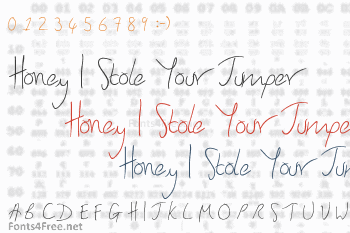 0 1 2 3 4 5 6 7 8 9 :-)
Honey I Stole Your Jumper
Honey I Stole Your Jumpe
Honey I Stole Your Jum
A B C D E F G H I J K L M O P R S T U V W
Fonts4Free.net